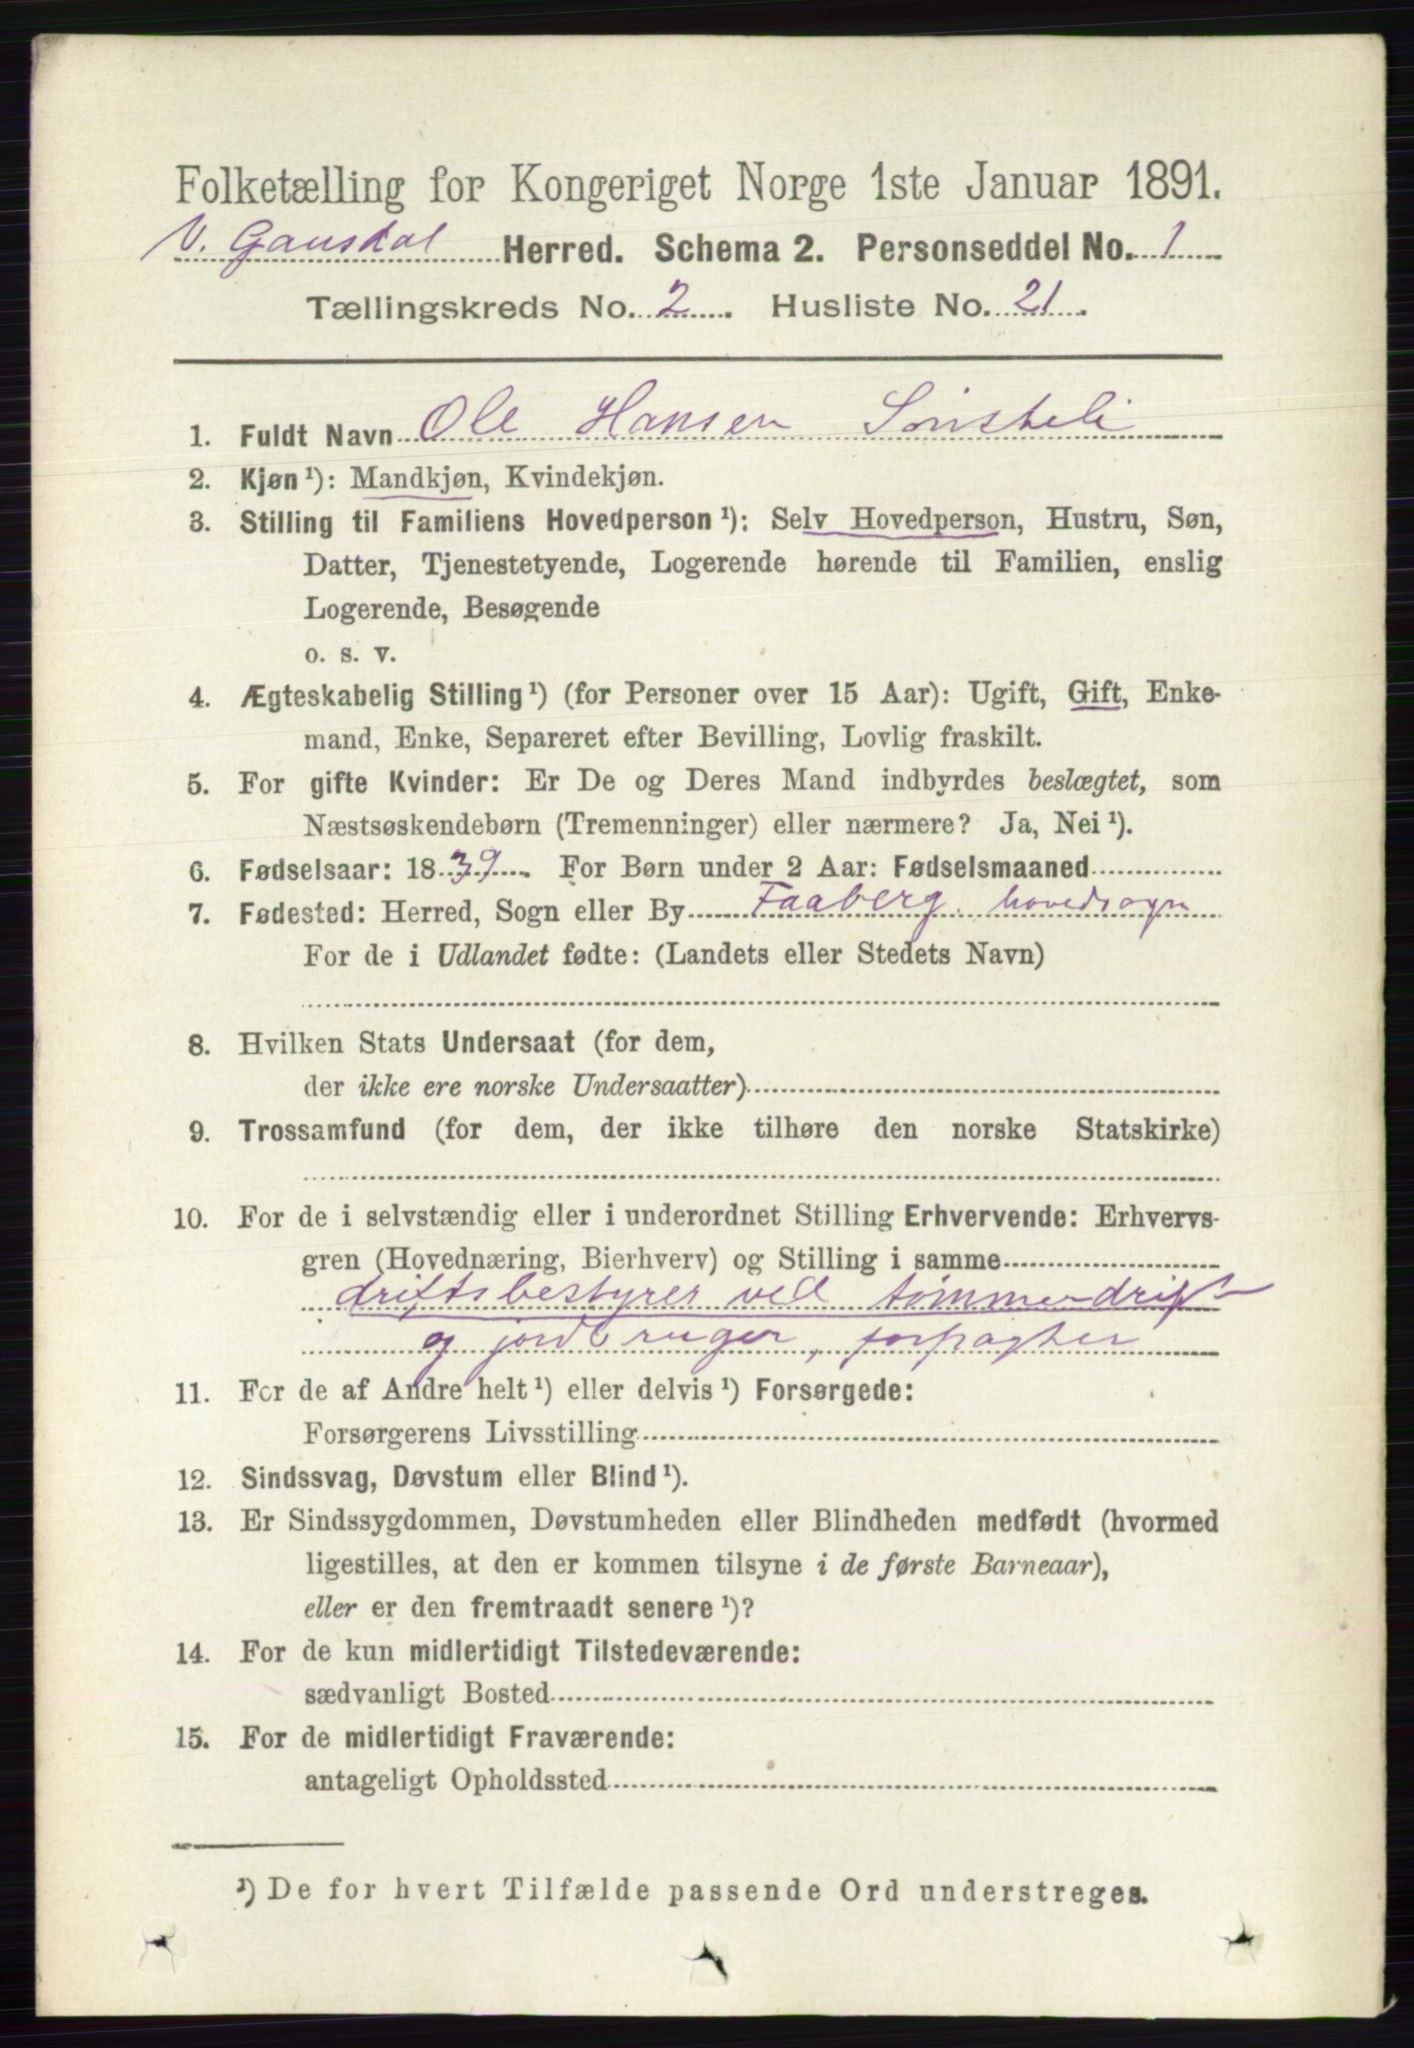 Folketælling for Kongeriget Norge 1ste Januar 1891.
V. Gausdal Herred. Schema 2. Personseddel No. 1
Tællingskreds No. 2. Husliste No. 21.
1. Fuldt Navn Ole Hansen
2. Kjøn ¹): Mandkjøn, Kvindekjøn.
3. Stilling til Familiens Hovedperson ¹): Selv Hovedperson, Hustru, Søn,
Datter, Tjenestetyende, Logerende hørende til Familien, enslig
Logerende, Besøgende
o. s. v.
4. Ægteskabelig Stilling ¹) (for Personer over 15 Aar): Ugift, Gift, Enke-
mand, Enke, Separeret efter Bevilling, Lovlig fraskilt.
5. For gifte Kvinder: Er De og Deres Mand indbyrdes beslægtet, som
Næstsøskendebørn (Tremenninger) eller nærmere? Ja, Nei ¹).
6. Fødselsaar: 1839. For Børn under 2 Aar: Fødselsmaaned
7. Fødested: Herred, Sogn eller By Faaberg hovedsogn
For de i Udlandet fødte: (Landets eller Stedets Navn)
8. Hvilken Stats Undersaat (for dem,
der ikke ere norske Undersaatter)
9. Trossamfund (for dem, der ikke tilhøre den norske Statskirke)
10. For de i selvstændig eller i underordnet Stilling Erhvervende: Erhvervs-
gren (Hovednæring, Bierhverv) og Stilling i samme
driftsbestyrer ved tømmerdrift
og jordbruger, forpagter
11. For de af Andre helt ¹) eller delvis ¹) Forsørgede:
Forsørgerens Livsstilling
12. Sindssvag, Døvstum eller Blind ¹).
13. Er Sindssygdommen, Døvstumheden eller Blindheden medfødt (hvormed
ligestilles, at den er kommen tilsyne i de første Barneaar),
eller er den fremtraadt senere ¹)?
14. For de kun midlertidigt Tilstedeværende:
sædvanligt Bosted
15. For de midlertidigt Fraværende:
antageligt Opholdssted
¹) De for hvert Tilfælde passende Ord understreges.